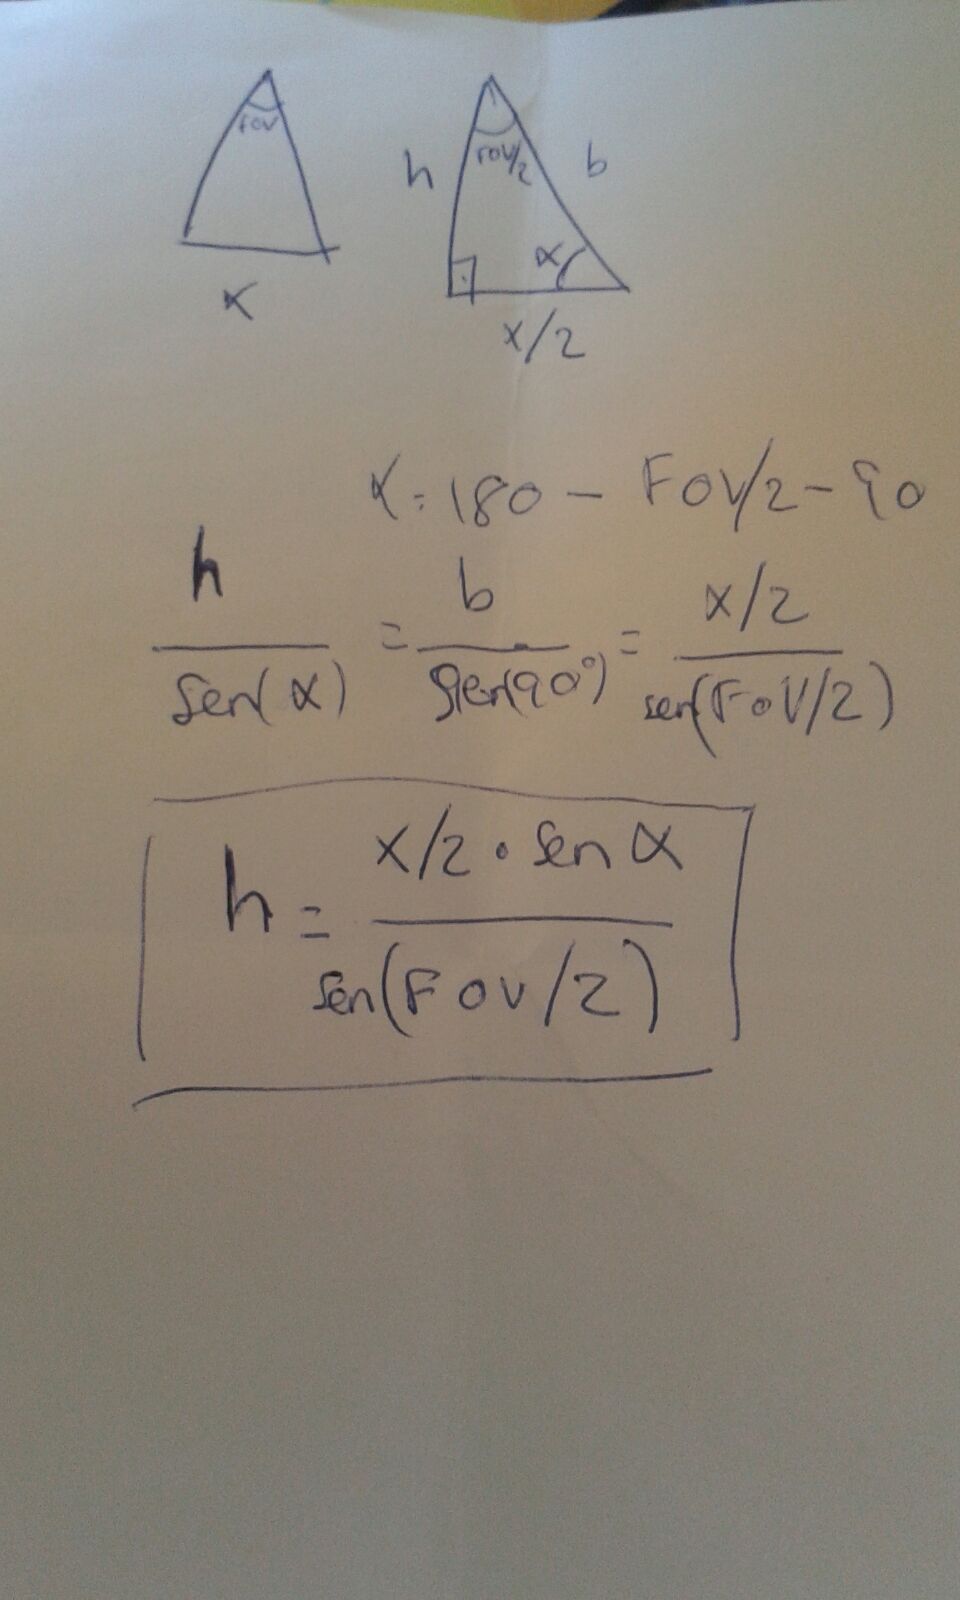 FOV
h FOV/2 b
α
x
x/2
α = 180 - FOV/2 - 90
h / sen(α) = b / sen(90°) = x/2 / sen(FOV/2)
h = x/2 · sen α / sen(FOV/2)